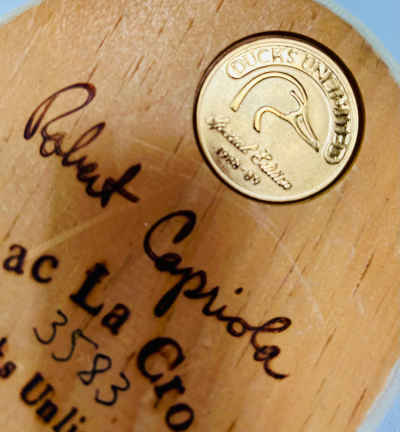 DUCKS UNLIMITED
Special Edition
Robert
Capriola
ac La Cro
3583
ks Unli